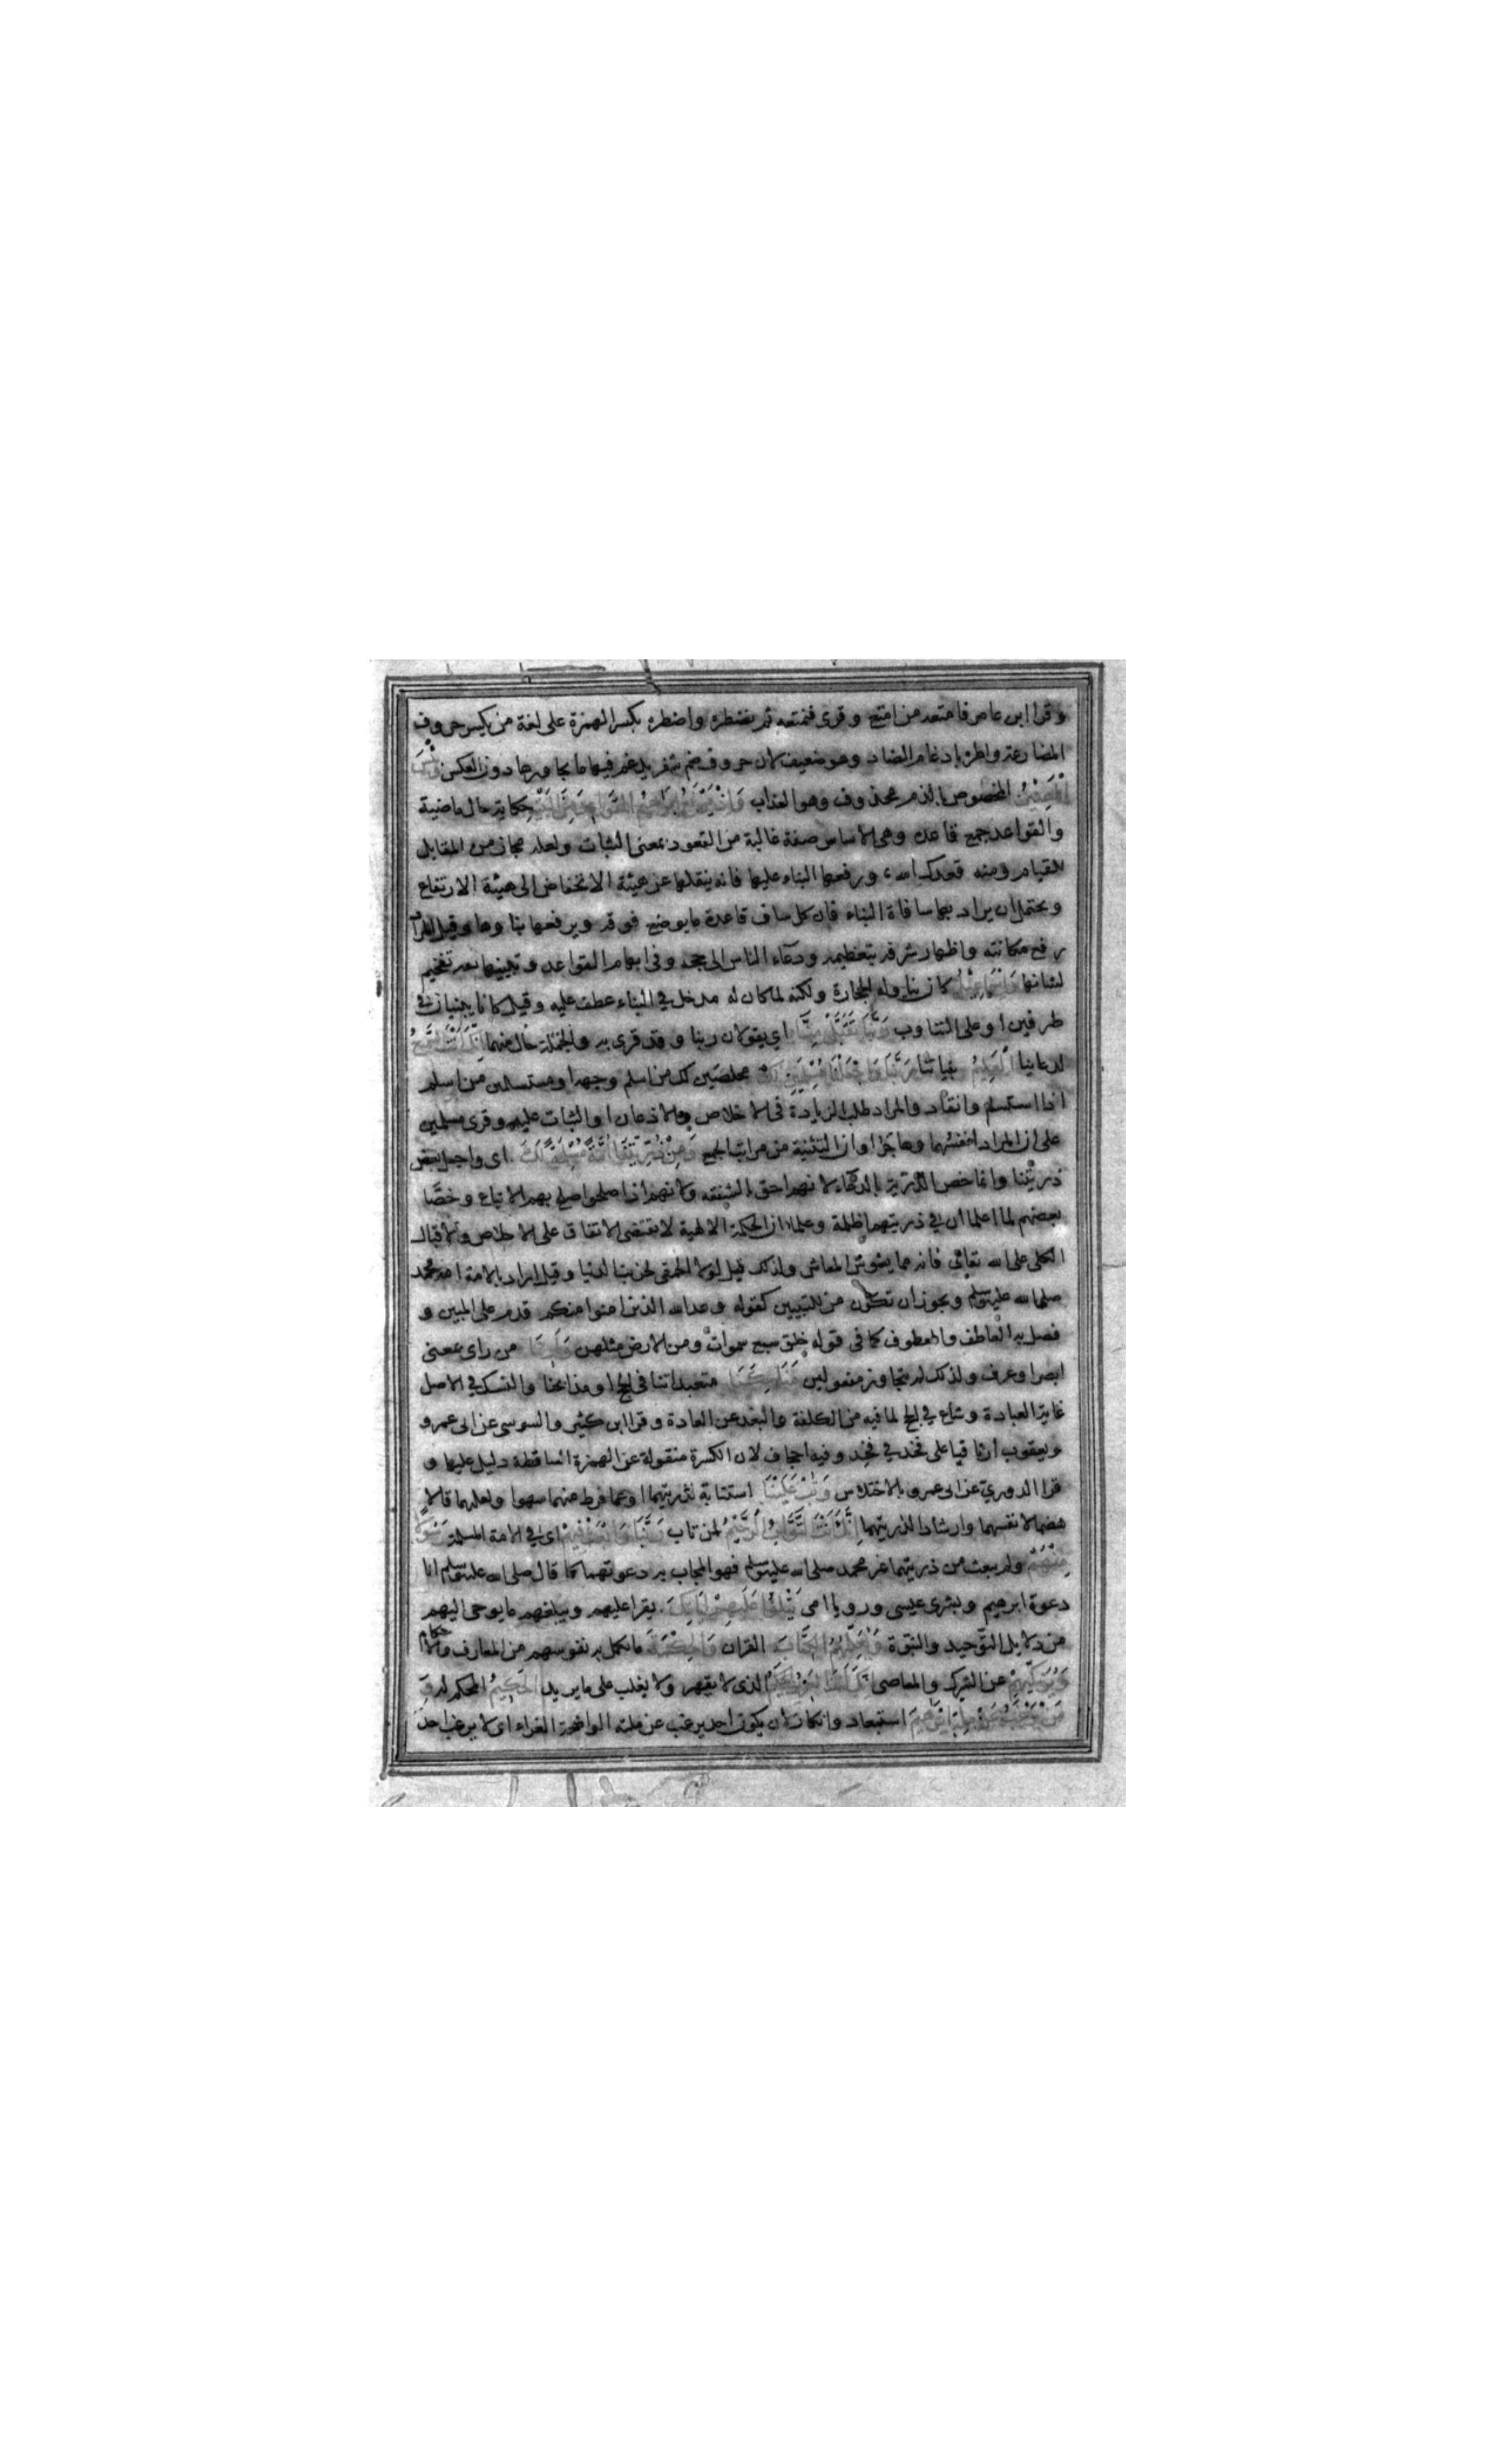 وقرا ابن عامر فامتعه من امتع وقرى فنمتعه ثم نضطره واضطره بكسر الهمزة على لغة من يكسر حروف
المضارعة واطره بادغام الضاد وهو ضعيف لان حروف ضم شفر يدغم فيها ما يجاورها دون العكس وبئس
المصير المخصوص بالذم محذوف وهو العذاب واذ يرفع ابراهيم القواعد من البيت حكاية حال ماضية
والقواعد جمع قاعدة وهي الاساس صفة غالبة من القعود بمعنى الثبات ولعله مجاز من المقابل
للقيام ومنه قعدك الله ورفعها البناء عليها فانه ينقلها عن هيئة الانخفاض الى هيئة الارتفاع
ويحتمل ان يراد بها سافاة البناء فان كل ساف قاعدة ما يوضع فوقه ويرفعها بناوها وقيل المراد
رفع مكانته واظهار شرفه بتعظيمه ودعاء الناس الى حجه وفى ابهام القواعد وتبيينها بعد تفخيم
لشانها واسماعيل كان يناوله الحجارة ولكنه لما كان له مدخل في البناء عطف عليه وقيل كانا يبنيان في
طرفين او على التناوب ربنا تقبل منا اي يقولان ربنا وقد قرى به والجملة حال منهما انك انت السميع
لدعاينا العليم بنياتنا ربنا واجعلنا مسلمين لك مخلصين لك من اسلم وجهه او مستسلمين من اسلم
اذا استسلم وانقاد والمراد طلب الزيادة فى الاخلاص والاذعان او الثبات عليه وقرى مسلمين
على ان المراد انفسهما وهاجر او ان التثنية من مراتب الجمع ومن ذريتنا امة مسلمة لك اى واجعل بعض
ذريتنا وانما خص الذرية بالدعاء لانهم احق بالشفقه ولانهم اذا صلحوا صلح بهم الاتباع وخصا
بعضهم لما اعلما ان في ذريتهما ظلمة وعلما ان الحكمة الالهية لا تقتضى الاتفاق على الاخلاص والاقبال
الكلى على الله تعالى فانه مما يشوش المعاش ولذلك قيل لولا الحمقى لخربت الدنيا وقيل اراد بالامة امة محمد
صلى الله عليه وسلم ويجوز ان تكون من للتبيين كقوله وعد الله الذين امنوا منكم قدم على المبين و
فصل به العاطف والمعطوف كما فى قوله خلق سبع سموات ومن الارض مثلهن وارنا من راى بمعنى
ابصر او عرف ولذلك لم يتجاوز مفعولين مناسكنا متعبداتنا فى الحج او مذابحنا والنسك في الاصل
غاية العبادة وشاع في الحج لما فيه من الكلفة والبعد عن العادة وقرا ابن كثير والسوسى عن ابى عمرو
ويعقوب ارنا قياسا على فخذ في فخذ وفيه اجحاف لان الكسرة منقولة عن الهمزة الساقطة دليل عليها و
قرا الدوري عن ابى عمرو بالاختلاس وتب علينا استتابة لذريتهما او عما فرط منهما سهوا ولعلهما قالا
هضما لانفسهما وارشادا لذريتهما انك انت التواب الرحيم لمن تاب ربنا وابعث فيهم اى في الامة المسلمة رسولا
منهم ولم يبعث من ذريتهما غير محمد صلى الله عليه وسلم فهو المجاب به دعوتهما كما قال صلى الله عليه وسلم انا
دعوة ابرهيم وبشرى عيسى ورويا امى يتلوا عليهم اياتك يقرا عليهم ويبلغهم ما يوحى اليهم
من دلايل التوحيد والنبوة ويعلمهم الكتاب القران والحكمة ما تكمل به نفوسهم من المعارف والاحكام
ويزكيهم عن الشرك والمعاصى انك انت العزيز الحكيم الذى لا يقهر ولا يغلب على ما يريد الحكيم المحكم له و
من يرغب عن ملة ابراهيم استبعاد وانكار لان يكون احد يرغب عن ملته الواضحة الغراء اى لا يرغب احد